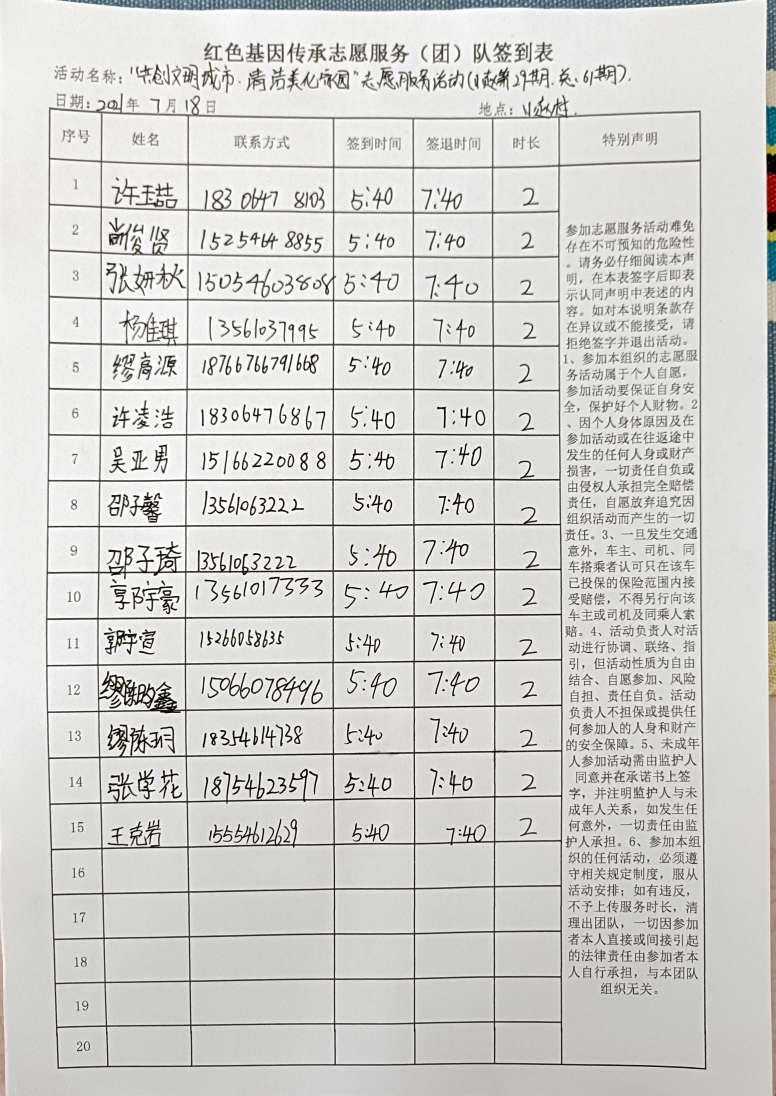 红色基因传承志愿服务（团）队签到表
活动名称："共创文明城市·清洁美化家园"志愿服务活动(小赵第29期.总:61期).
日期：2021年 7月18日 地点：小赵村.
序号 姓名 联系方式 签到时间 签退时间 时长 特别声明
1 许玉喆 183 0647 8103 5:40 7:40 2
2 尚俊贤 1525464 8855 5:40 7:40 2
3 张妍秋 15054603808 5:40 7:40 2
4 杨佳琪 13561037995 5:40 7:40 2
5 缪高源 18766766791668 5:40 7:40 2
6 许凌浩 18306476867 5:40 7:40 2
7 吴亚男 15166220088 5:40 7:40 2
8 邵子馨 13561063222 5:40 7:40 2
9 邵子琦 13561063222 5:40 7:40 2
10 宇豪 13561017333 5:40 7:40 2
11 郭宇宣 15266058635 5:40 7:40 2
12 缪鑫 15066078496 5:40 7:40 2
13 缪陈玥 18354614738 5:40 7:40 2
14 张学花 18754623597 5:40 7:40 2
15 王克岩 15554612629 5:40 7:40 2
16
17
18
19
20
参加志愿服务活动难免
存在不可预知的危险性
。请务必仔细阅读本声
明，在本表签字后即表
示认同声明中表述的内
容。如对本说明条款存
在异议或不能接受，请
拒绝签字并退出活动。
1、参加本组织的志愿服
务活动属于个人自愿，
参加活动要保证自身安
全，保护好个人财物。2
、因个人身体原因及在
参加活动或在往返途中
发生的任何人身或财产
损害，一切责任自负或
由侵权人承担完全赔偿
责任，自愿放弃追究因
组织活动而产生的一切
责任。3、一旦发生交通
意外，车主、司机、同
车搭乘者认可只在该车
已投保的保险范围内接
受赔偿，不得另行向该
车主或司机及同乘人索
赔。4、活动负责人对活
动进行协调、联络、指
引，但活动性质为自由
结合、自愿参加、风险
自担、责任自负。活动
负责人不担保或提供任
何参加人的人身和财产
的安全保障。5、未成年
人参加活动需由监护人
同意并在承诺书上签
字，并注明监护人与未
成年人关系，如发生任
何意外，一切责任由监
护人承担。6、参加本组
织的任何活动，必须遵
守相关规定制度，服从
活动安排；如有违反，
不予上传服务时长，清
理出团队，一切因参加
者本人直接或间接引起
的法律责任由参加者本
人自行承担，与本团队
组织无关。